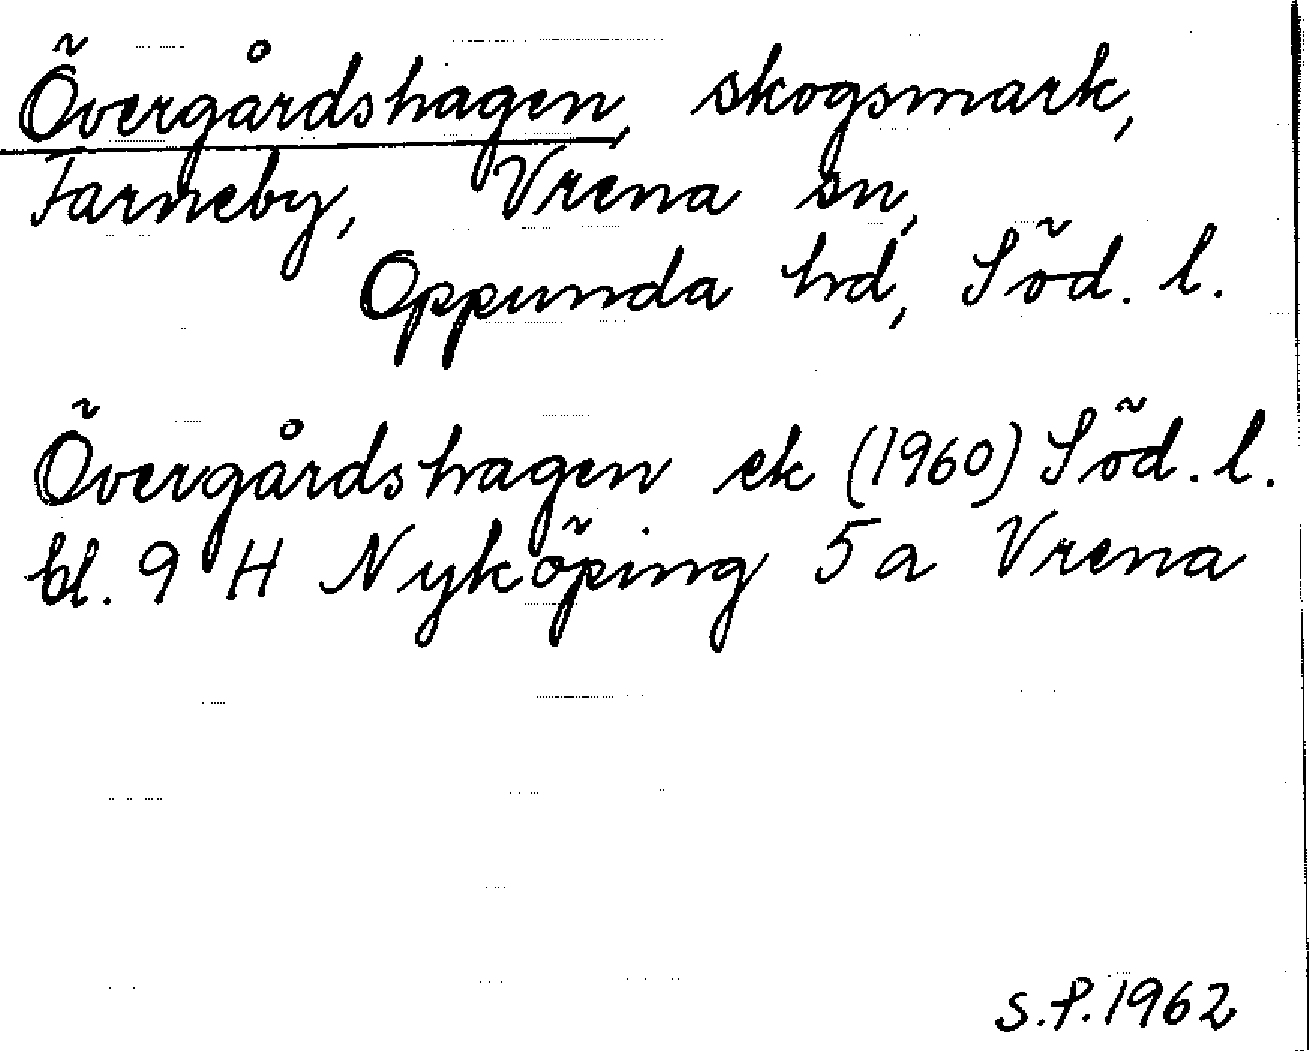 Övergårdshagen, skogsmark,
Farneby, Vrena sn,
Oppunda hd, Söd. l.
Övergårdshagen ek (1960) Söd. l.
bl. 9 H Nyköping 5 a Vrena
S.P. 1962